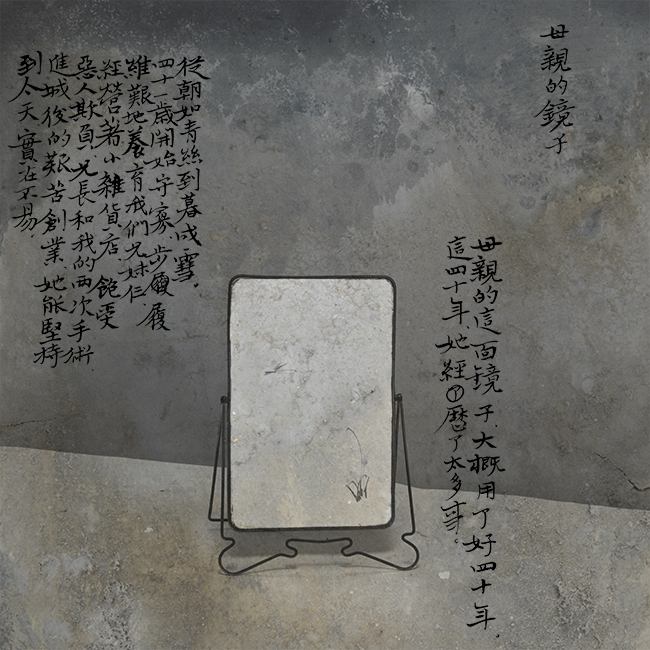 母親的鏡子
母親的這面鏡子.大概用了好四十年.
這四十年她經歷了太多事。
從朝如青絲到暮成雪.
四十一歲開始守寡.步履履
維艱地養育我們兄妹仨.
經營着小雜貨店.飽受
惡人欺負.兄長和我的兩次手術.
進城後的艱苦創業.她能堅持
到今天實在不易.